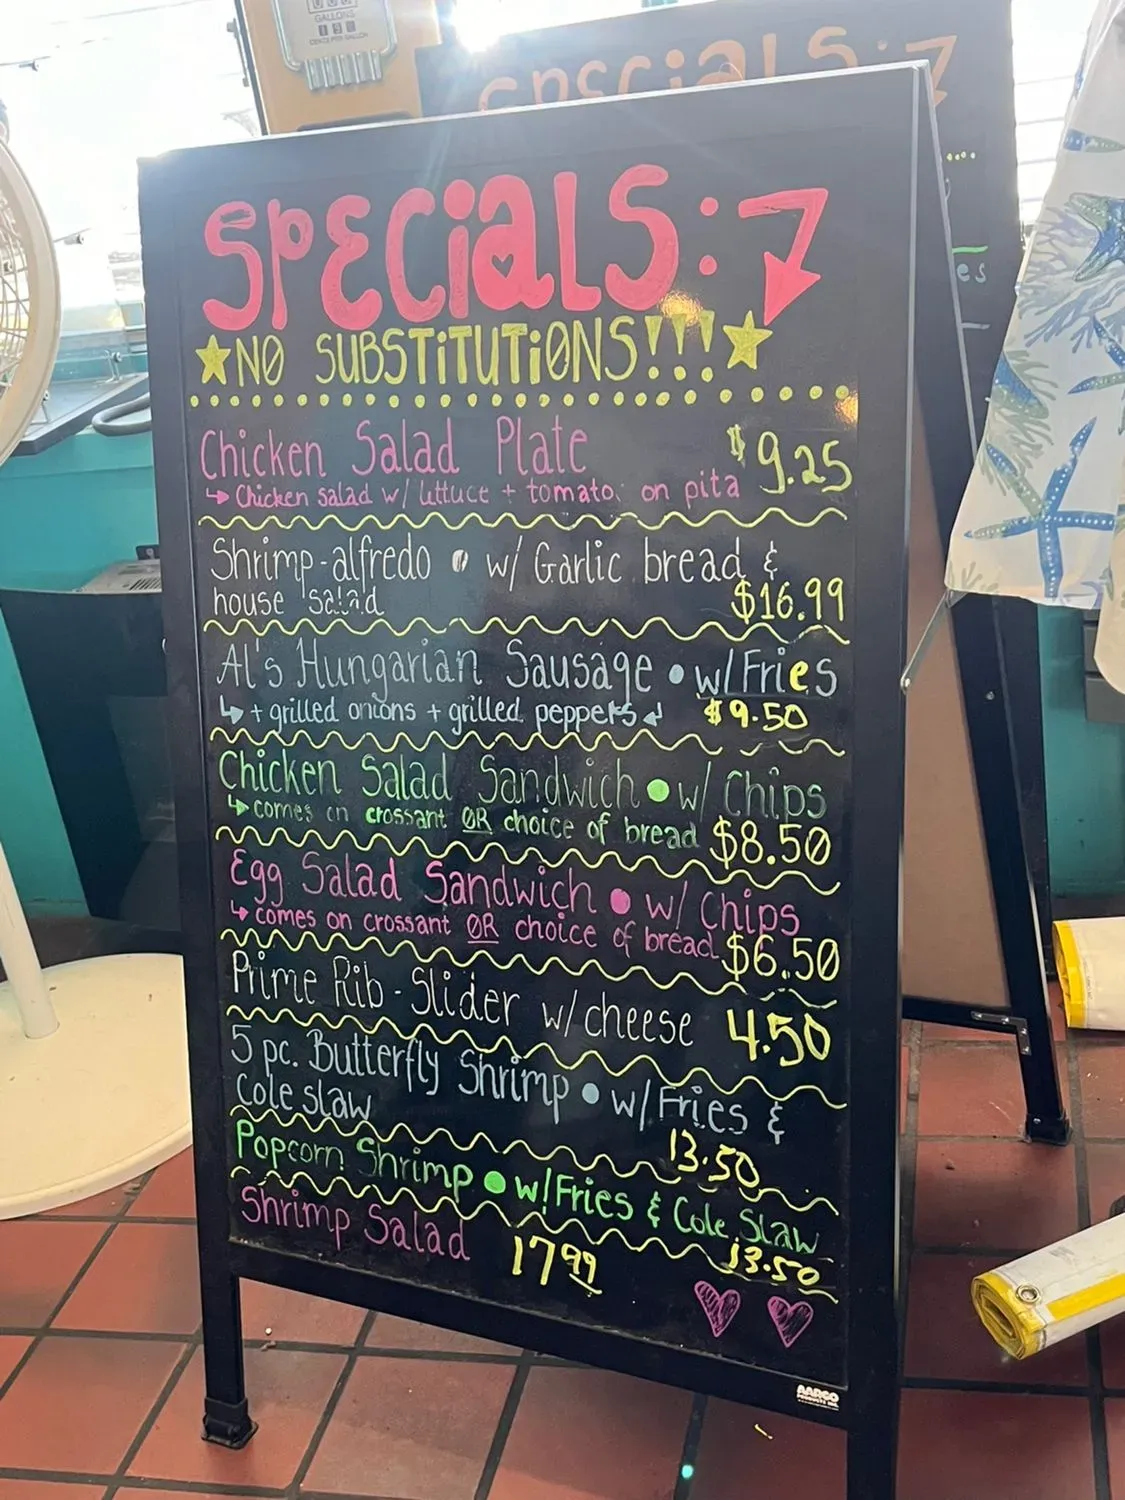 GALLONS
CENTS PER GALLON
SPECiALS:
SPECiALS:
NO SUBSTiTUTiONS!!!
Chicken Salad Plate $9.25
Chicken salad w/ lettuce + tomato on pita
Shrimp-alfredo w/ Garlic bread &
house salad $16.99
Al's Hungarian Sausage • w/ Fries
+ grilled onions + grilled peppers $9.50
Chicken Salad Sandwich • w/ Chips
comes on crossant OR choice of bread $8.50
Egg Salad Sandwich • w/ Chips
comes on crossant OR choice of bread $6.50
Prime Rib - Slider w/ cheese 4.50
5 pc. Butterfly Shrimp • w/ Fries &
Cole slaw 13.50
Popcorn Shrimp • w/ Fries & Cole Slaw
13.50
Shrimp Salad 17.99
AARCO
PRODUCTS INC.